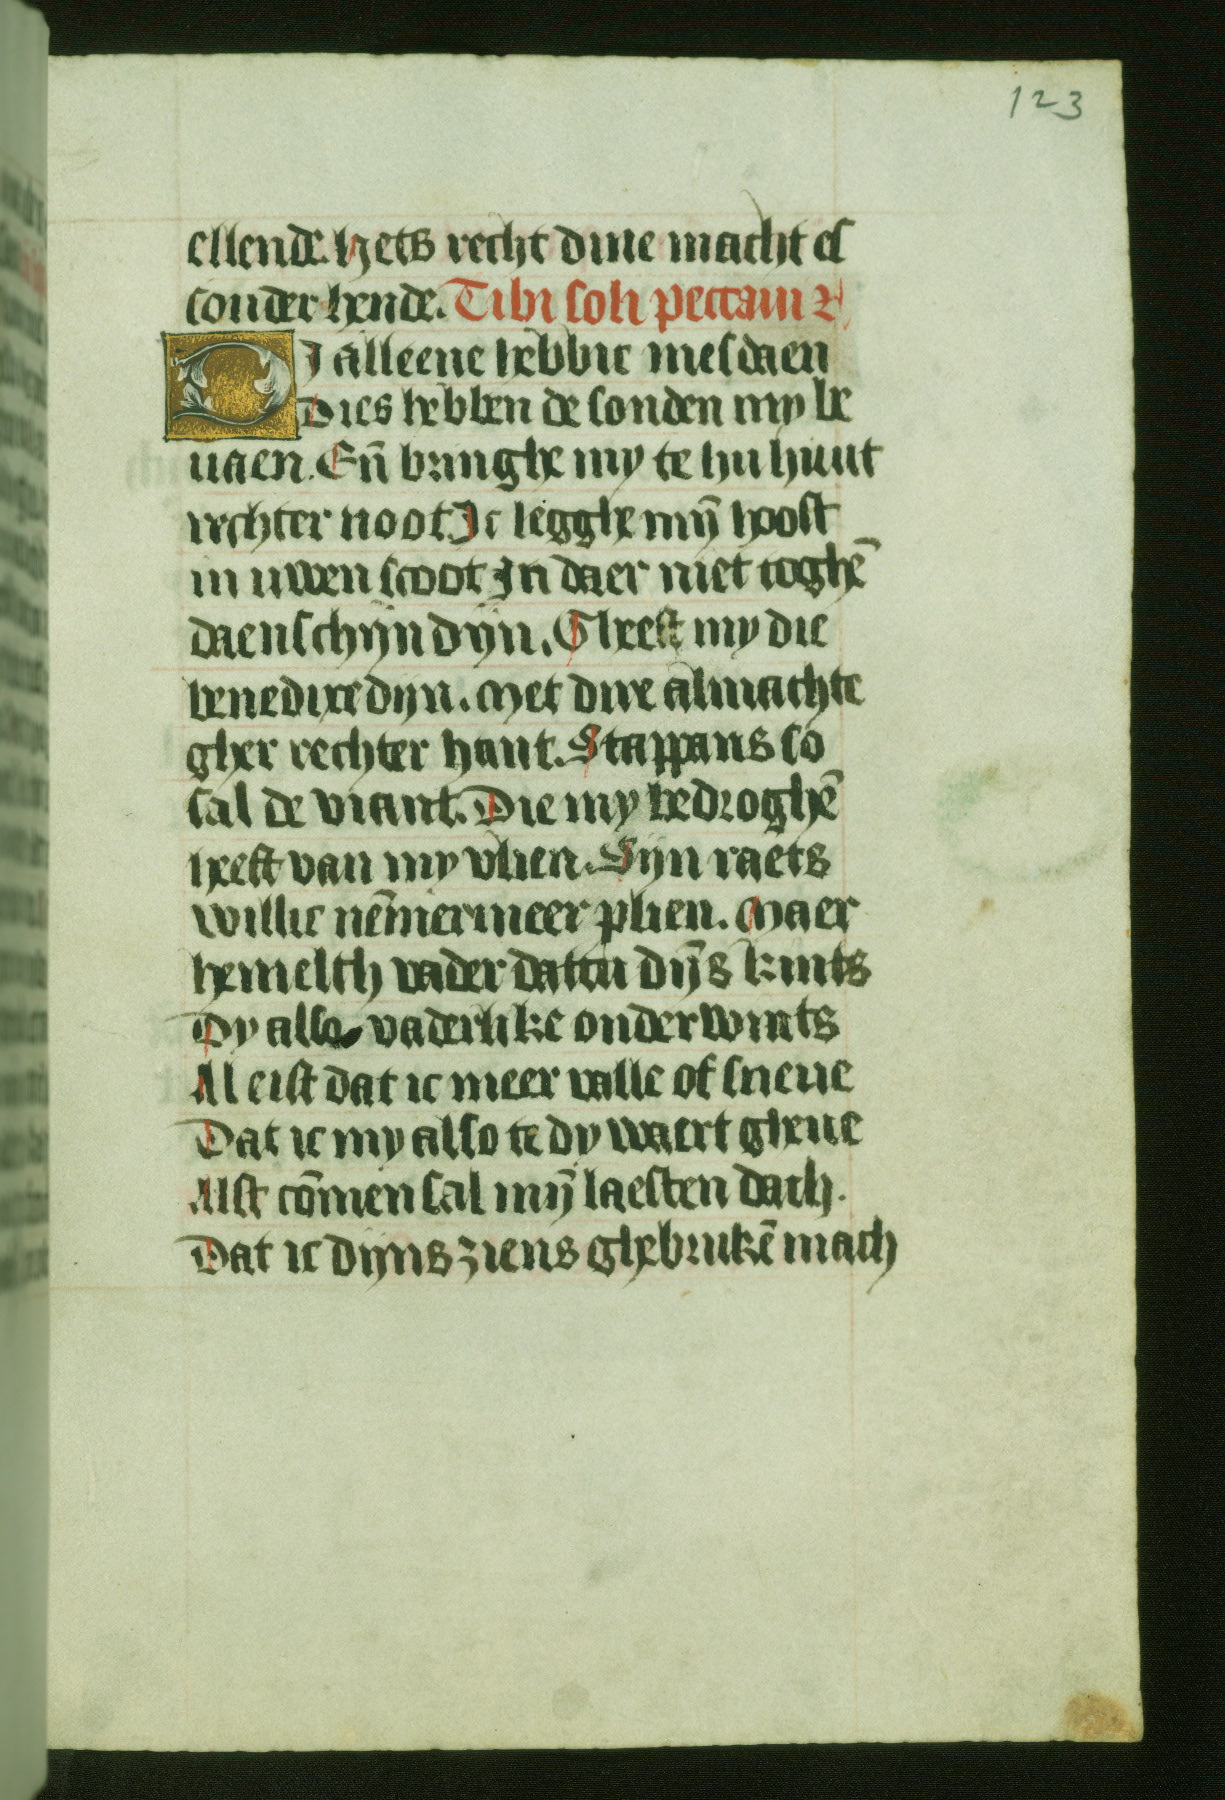 123
ellende. Hets recht dine macht es
sonder hende. Tibi soli peccaui ⁊
DJ alleene hebbic mesdaen
Dies hebben de sonden my be
uaen. Eñ bringhe my te hu huut
rechter noot Jc legghe mỹ hooft
in uwen scoot Jn daer niet toghē
daenschijn dijn. Gheeft my die
benedixe dijn. Met dire almachte
gher rechter hant. Stappans so
sal de viant. Die my bedroghē
heeft van my vlien. Sijn raets
willic nēmermeer plien. Maer
hemelsch vader dattu dijs kints
Dy also vaderlike onderwints
Al eist dat ic meer valle of sneue
Dat ic my also te dy waert gheue
Alst cōmen sal mỹ laesten dach.
Dat ic dijns ziens ghebrukē mach